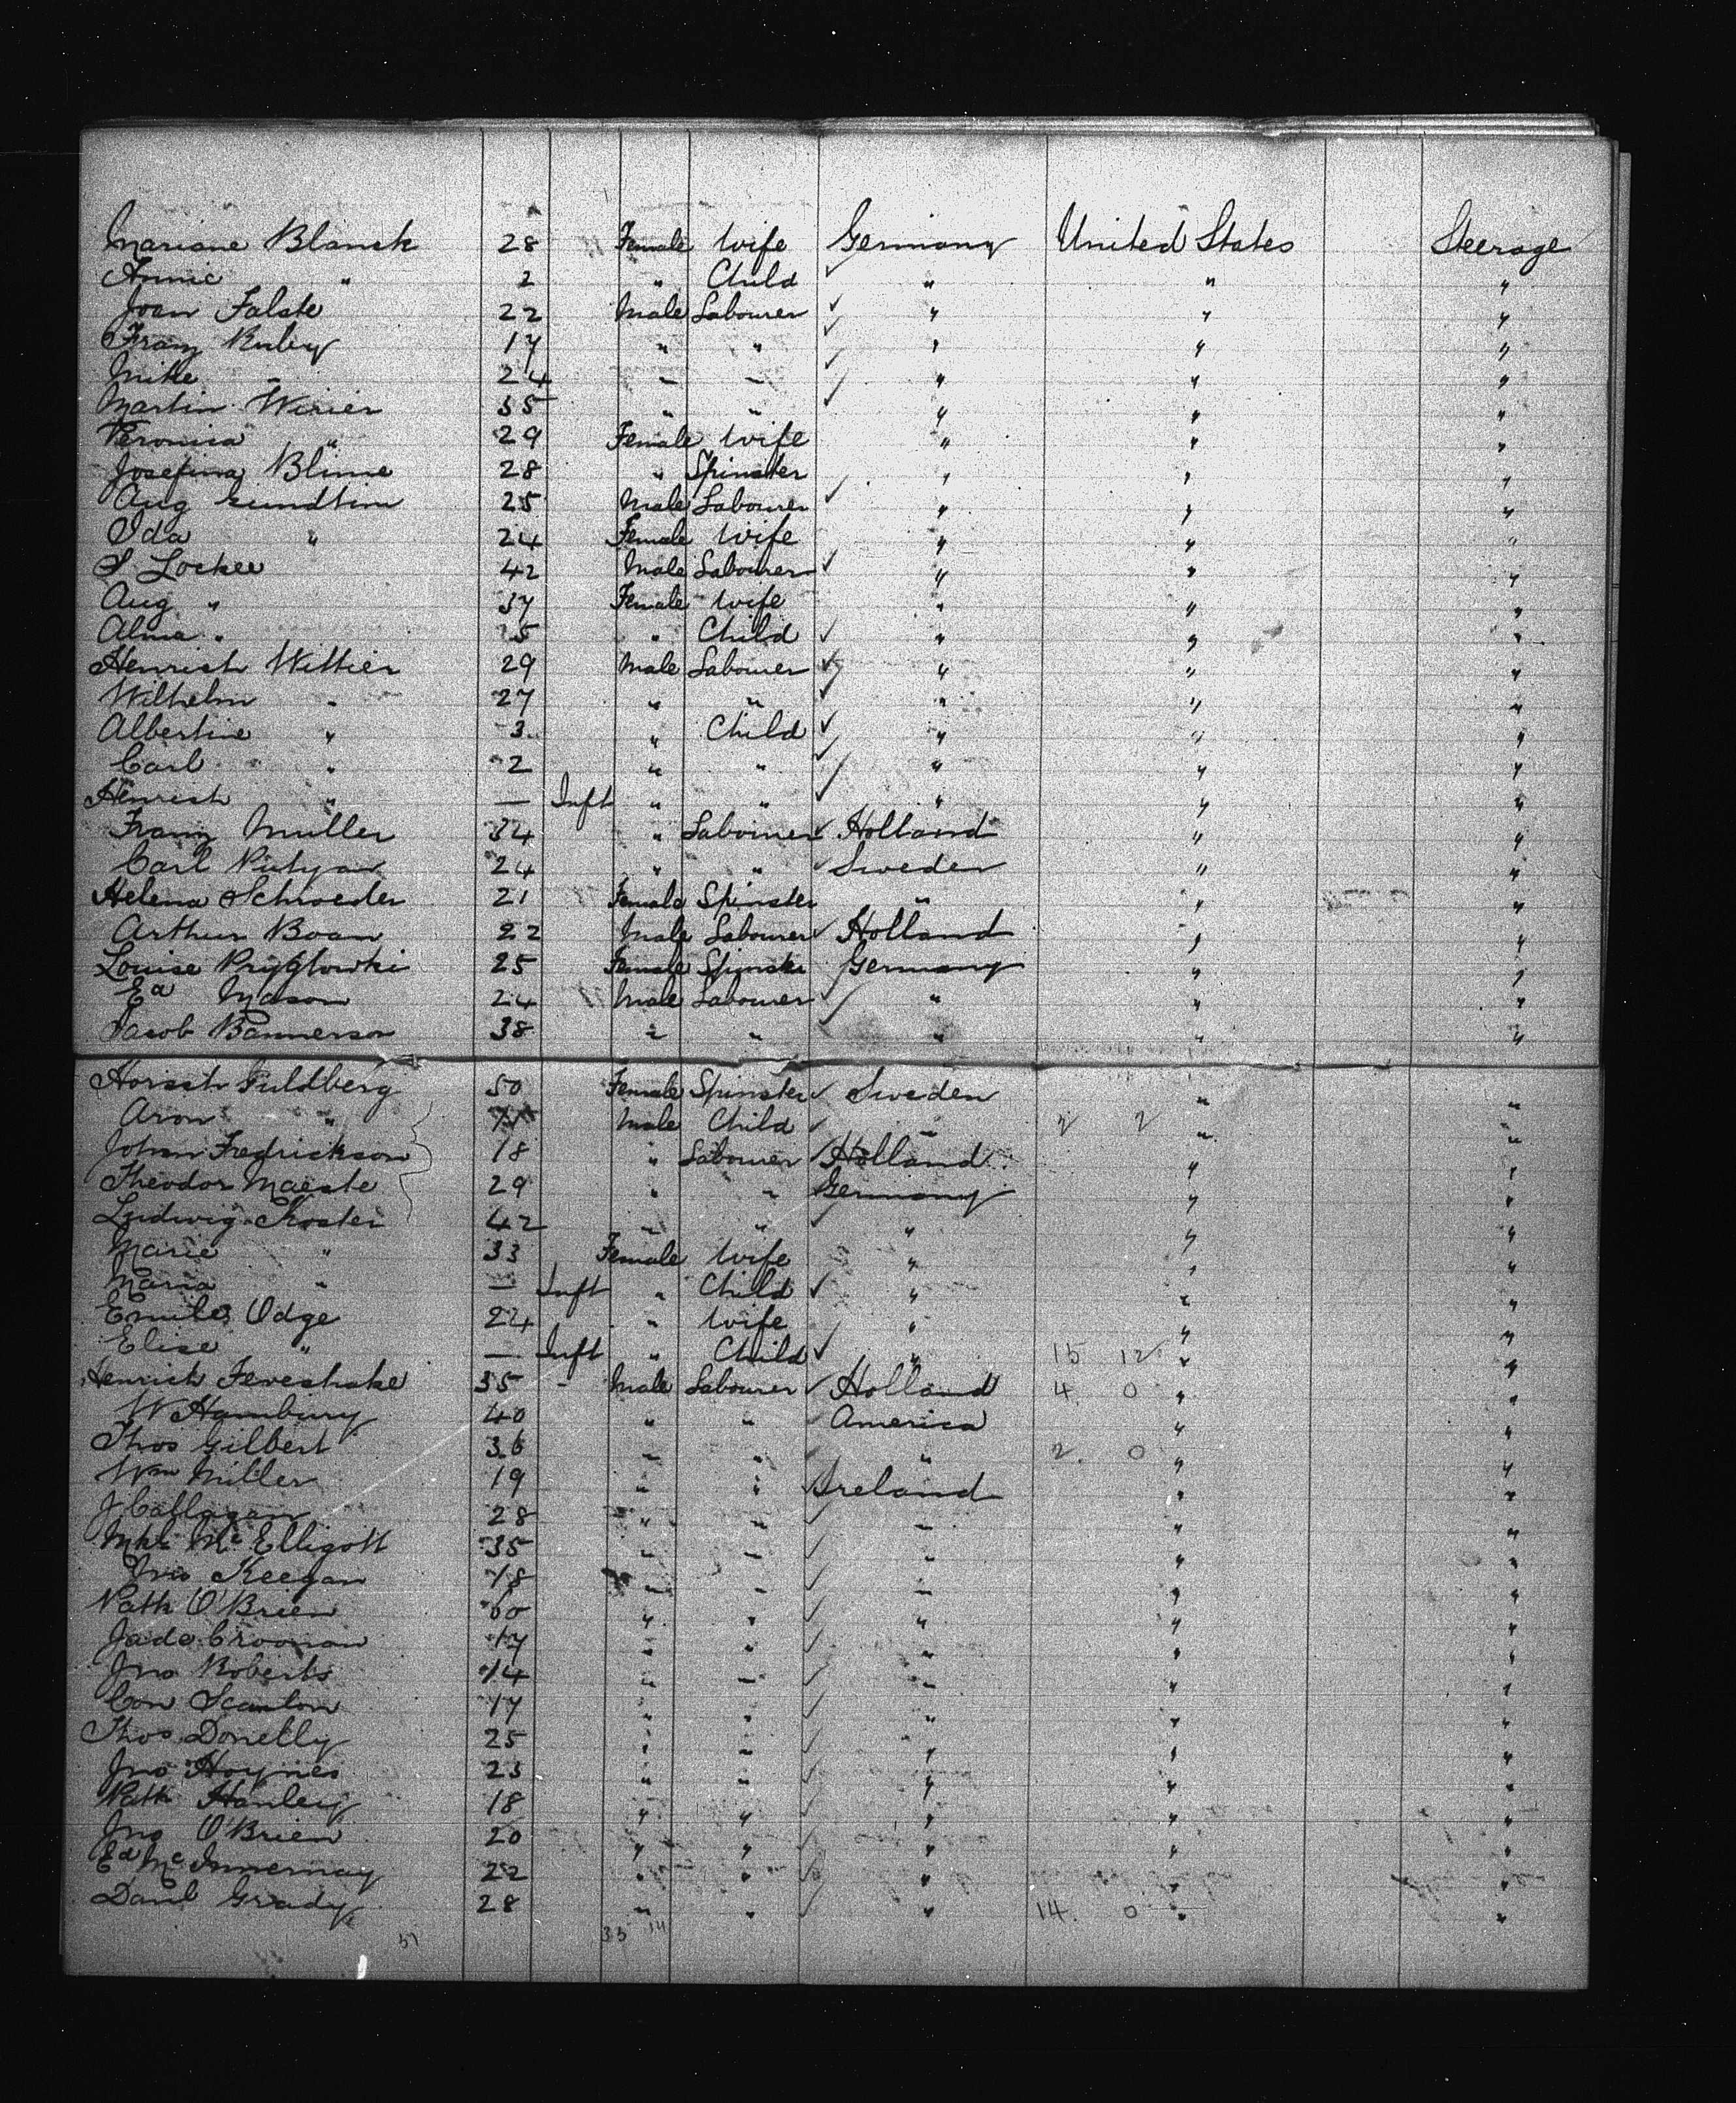 Mariane Blansk 28 Female Wife Germany United States Steerage
Annie " 2 " Child " " "
Joan Falste 22 Male Labourer " " "
Franz Ruby 17 " " " " "
Mike " 24 " " " " "
Martin Wirier 35 " " " " "
Veronica " 29 Female Wife " " "
Josefina Blime 28 " Spinster " " "
Aug 25 Male Labourer " " "
Ida " 24 Female Wife " " "
S Lockee 42 Male Labourer " " "
Aug " 37 Female Wife " " "
Alma " 5 " Child " " "
Henrich Wittier 29 Male Labourer " " "
Wilhelm " 27 " " " " "
Albertine " 3 " Child " " "
Carl " 2 " " " " "
Henrich " — Inft " " " " "
Franz Muller 34 " Labourer Holland " "
Carl 24 " " Sweden " "
Helena Schroeder 21 Female Spinster " " "
Arthur Boan 22 Male Labourer Holland " "
Louise Pryglowki 25 Female Spinster Germany " "
Ed Mason 24 Male Labourer " " "
Jacob Bannerson 38 " " " " "
Fuldberg 50 Female Spinster Sweden " "
Aron " Male Child " 2 2 " "
Johan Fredrickson 18 " Labourer Holland " "
Theodor Maeste 29 " " Germany " "
Ludwig Koster 42 " " " " "
Marie " 33 Female Wife " " "
Maria " — Inft " Child " " "
Emile Odge 24 " Wife " " "
Elise " — Inft " Child " 15 12 " "
Henrich Feveshake 35 - Male Labourer Holland 4 0 " "
W Hambury 40 " " America " "
Thos Gilbert 36 " " " 2. 0 " "
Wm Miller 19 " " Ireland " "
J Callagan 28 " " " " "
Mc Elligott 35 " " " " "
Jno Keegan 18 " " " " "
Patk O'Brien 60 " " " " "
Jade Croonan 17 " " " " "
Jno Roberts 14 " " " " "
Con Scanlon 17 " " " " "
Thos Donelly 25 " " " " "
Jno Hoynes 23 " " " " "
Patk Hanley 18 " " " " "
Jno O'Brien 20 " " " " "
Ed Mc Innernay 22 " " " " "
Danl Grady 28 " " " 14. 0 " "
51 33 14